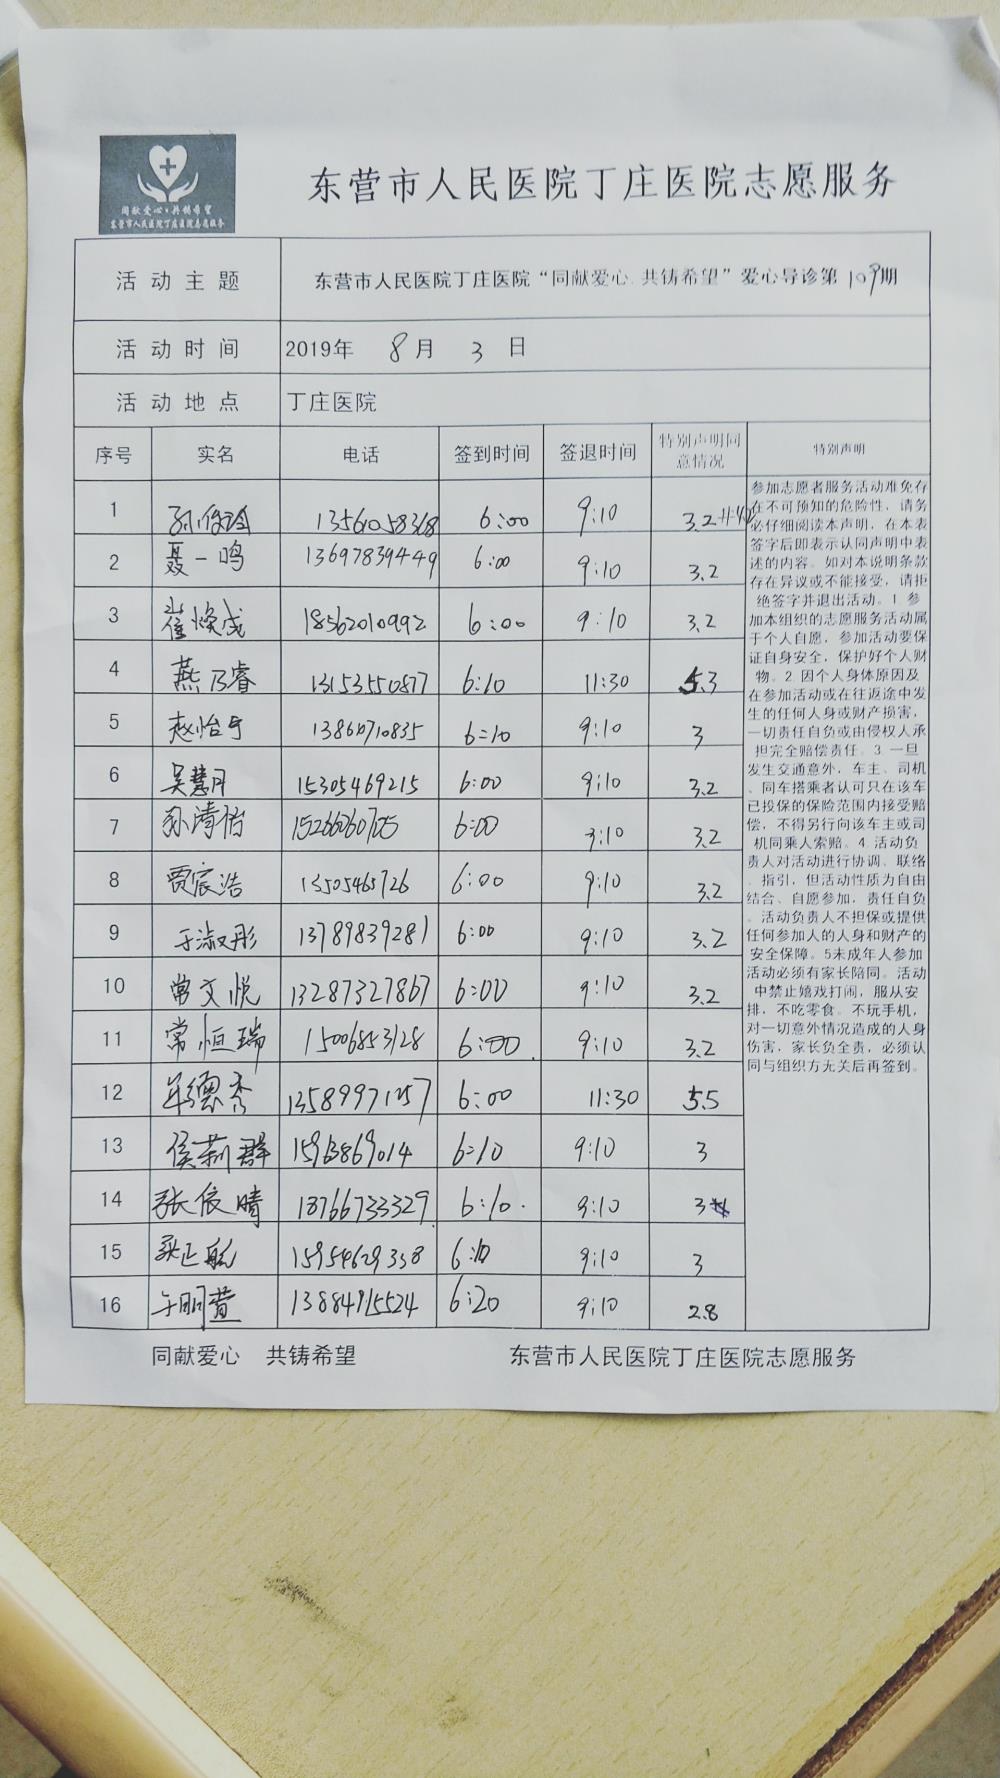 同献爱心·共铸希望
东营市人民医院丁庄医院志愿服务
东营市人民医院丁庄医院志愿服务
活动主题 东营市人民医院丁庄医院“同献爱心.共铸希望”爱心导诊第109期
活动时间 2019年 8月 3日
活动地点 丁庄医院
序号 实名 电话 签到时间 签退时间 特别声明同意情况 特别声明
1 13561058368 6:00 9:10 3.2
2 聂一鸣 13697839449 6:00 9:10 3.2
3 崔焕成 18562010992 6:00 9:10 3.2
4 燕乃睿 13153550877 6:10 11:30 5.3
5 赵怡宁 13860710835 6:10 9:10 3
6 吴慧月 15305469215 6:00 9:10 3.2
7 孙清怡 15266060705 6:00 9:10 3.2
8 贾宸浩 13505465726 6:00 9:10 3.2
9 于淑彤 13789839281 6:00 9:10 3.2
10 常文悦 13287327867 6:00 9:10 3.2
11 常恒瑞 15006853128 6:00 9:10 3.2
12 牟德秀 13589971257 6:00 11:30 5.5
13 侯莉群 15963869014 6:10 9:10 3
14 张依晴 18766733329 6:10 9:10 3
15 15954629338 6:10 9:10 3
16 明萱 13884915524 6:20 9:10 2.8
参加志愿者服务活动难免存
在不可预知的危险性，请务
必仔细阅读本声明，在本表
签字后即表示认同声明中表
述的内容。如对本说明条款
存在异议或不能接受，请拒
绝签字并退出活动。1.参
加本组织的志愿服务活动属
于个人自愿，参加活动要保
证自身安全，保护好个人财
物。2.因个人身体原因及
在参加活动或在往返途中发
生的任何人身或财产损害，
一切责任自负或由侵权人承
担完全赔偿责任。3.一旦
发生交通意外，车主、司机
、同车搭乘者认可只在该车
已投保的保险范围内接受赔
偿，不得另行向该车主或司
机同乘人索赔。4.活动负
责人对活动进行协调、联络
、指引，但活动性质为自由
结合、自愿参加，责任自负
。活动负责人不担保或提供
任何参加人的人身和财产的
安全保障。5未成年人参加
活动必须有家长陪同。活动
中禁止嬉戏打闹，服从安
排，不吃零食。不玩手机，
对一切意外情况造成的人身
伤害，家长负全责，必须认
同与组织方无关后再签到。
同献爱心 共铸希望 东营市人民医院丁庄医院志愿服务